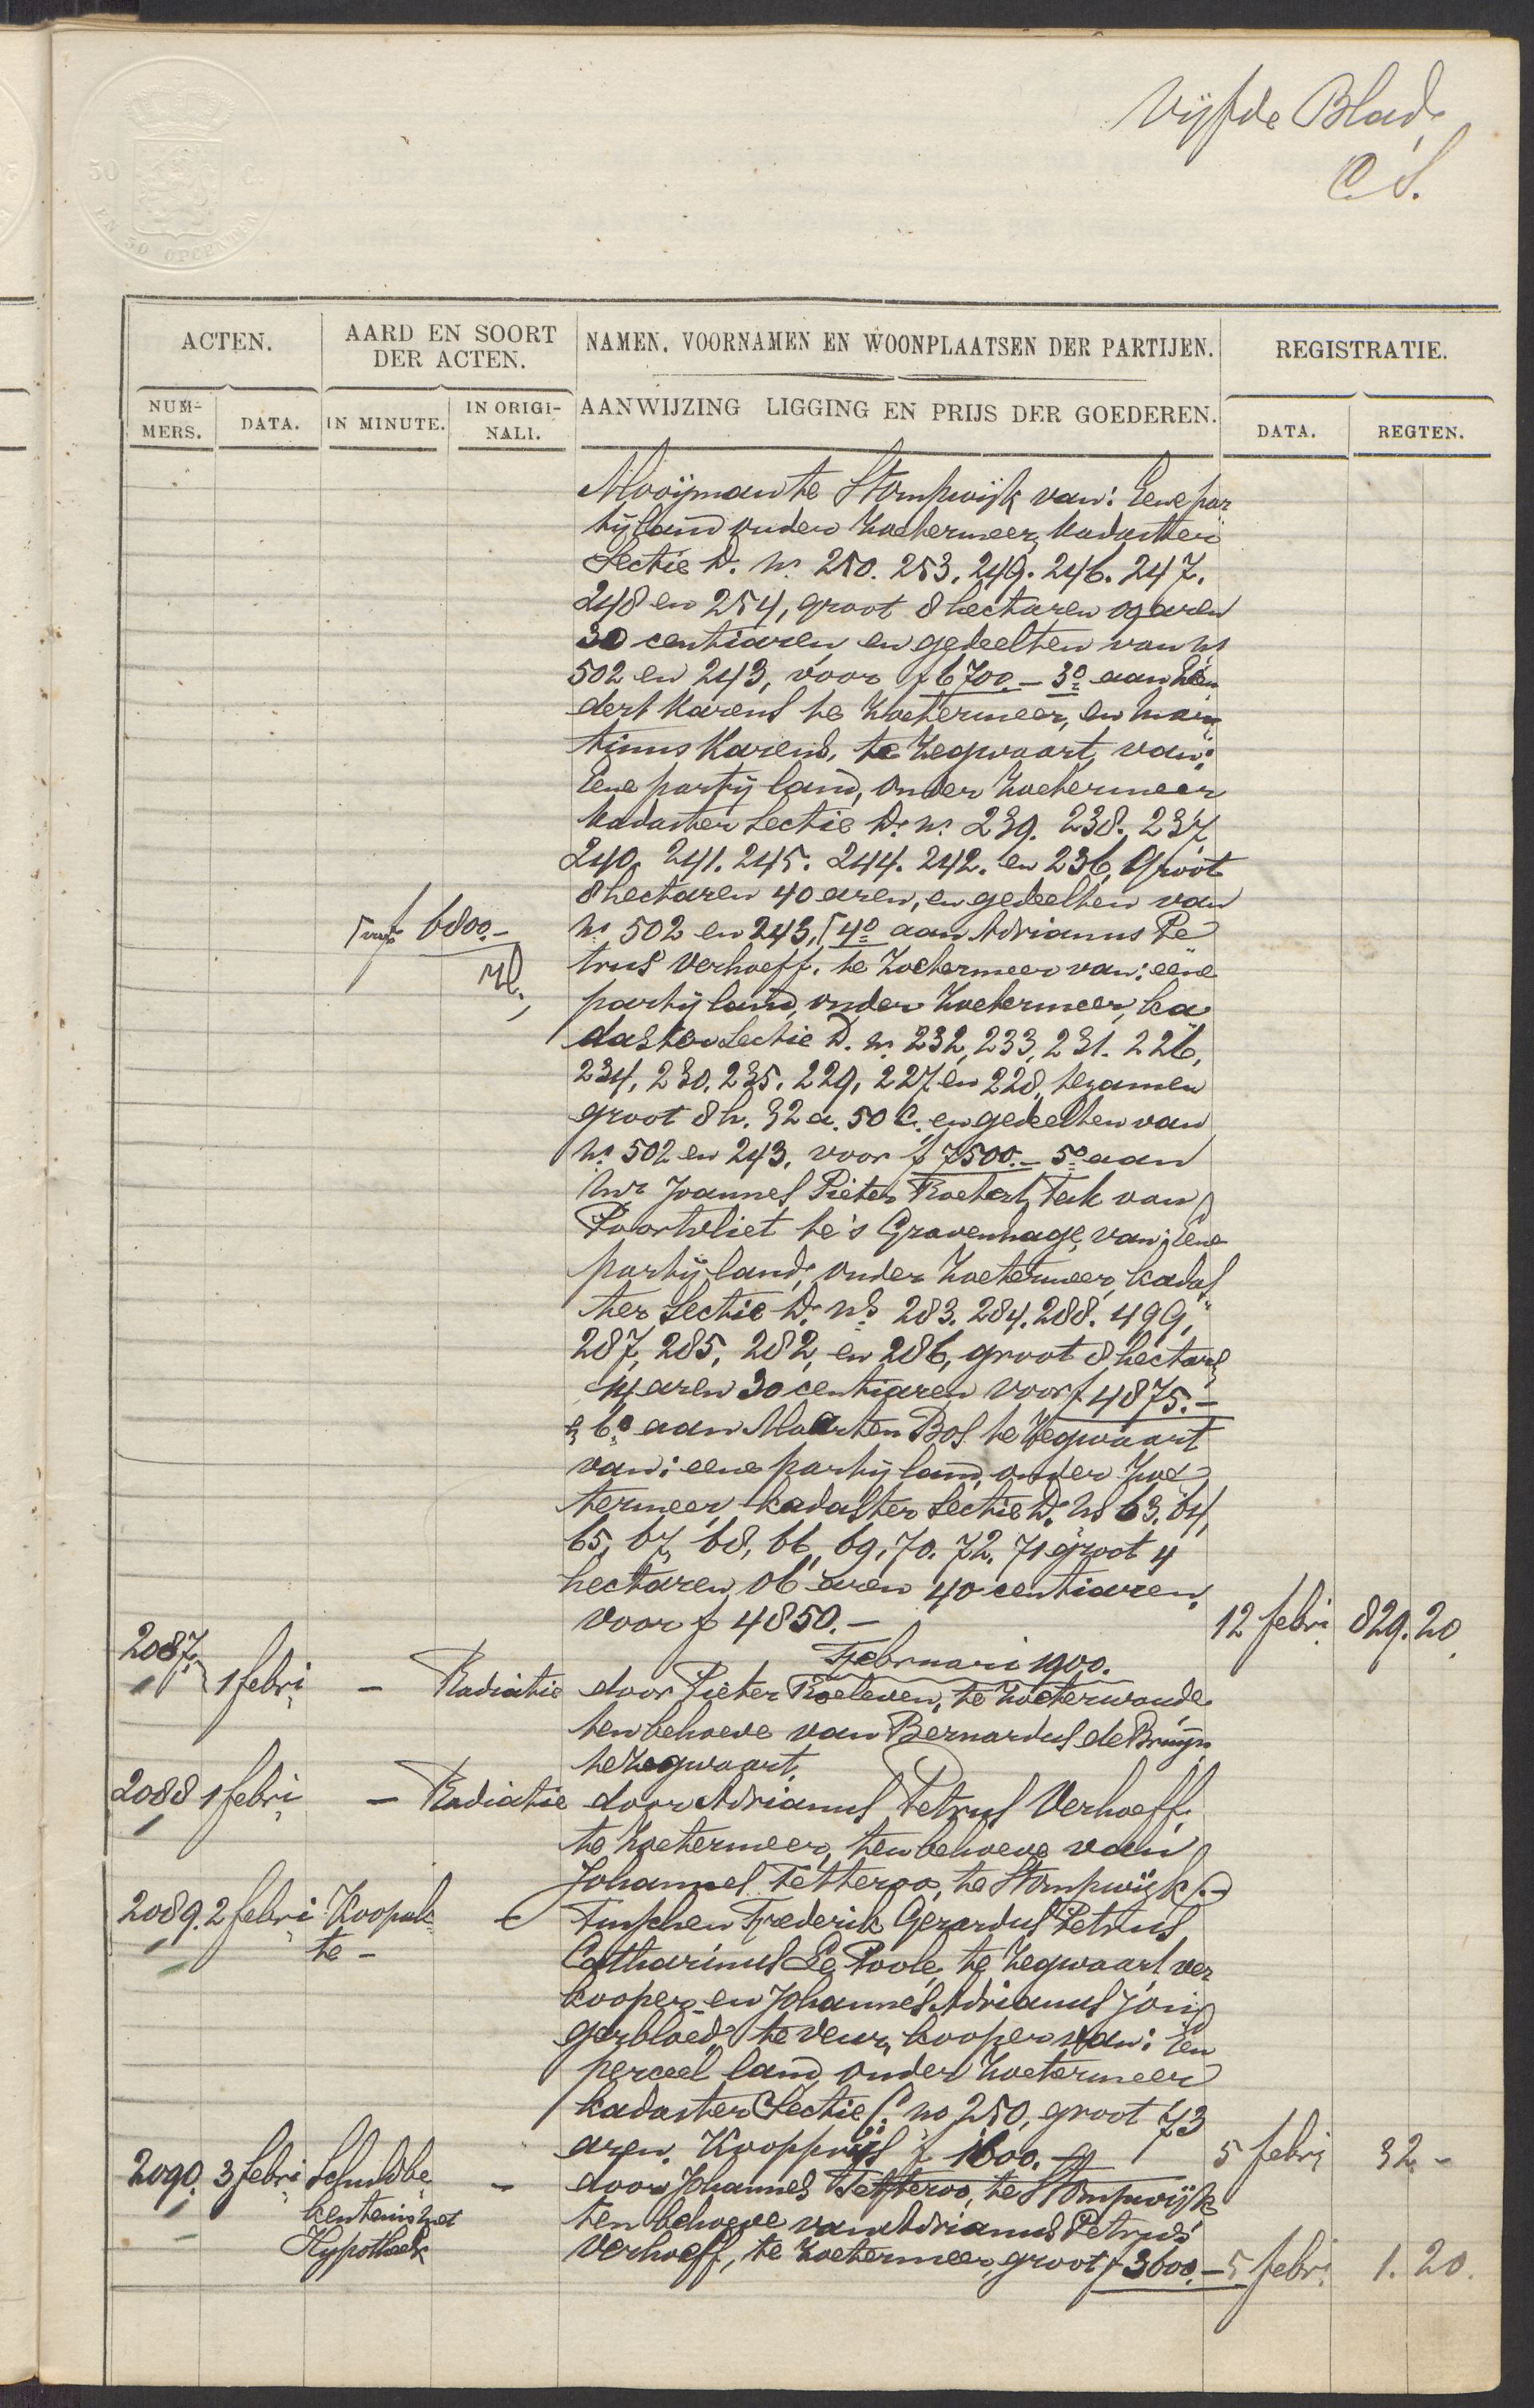 Vijfde Blad.
C.S.
50 C.
EN 50 OPCENTEN
ACTEN.
AARD EN SOORT
DER ACTEN.
NAMEN, VOORNAMEN EN WOONPLAATSEN DER PARTIJEN.
REGISTRATIE.
NUM-
MERS.
DATA.
IN MINUTE.
IN ORIGI-
NALI.
AANWIJZING LIGGING EN PRIJS DER GOEDEREN.
DATA.
REGTEN.
Mooijman te Stompwijk van: Eene par
tij land onder Zoetermeer, kadaster
Sectie D. ns 250. 253. 249. 246. 247.
248 en 254, groot 8 hectaren 09 aren
30 centiaren en gedeelten van ns
502 en 243, voor f 6700.- 3o aan Hen
dert Karens te Zoetermeer, en Mar
tinus Karens, te Zegwaart, van:
Eene partij land, onder Zoetermeer
kadaster Sectie D. ns 239. 238. 237,
240. 241. 245. 244. 242. en 236, Groot
8 hectaren 40 aren, en gedeelten van
voor f 6800.-
ns 502 en 243, 4o aan Adrianus Pe
trus Verhoeff. te Zoetermeer van: eene
partij land, onder Zoetermeer, ka
daster Sectie D. ns 232, 233, 231. 226,
234, 230. 235. 229, 227 en 228, tezamen
groot 8 h. 32 a. 50 C. en gedeelten van
ns 502 en 243. voor f 7500.- 5o aan
Mr Joannes Pieter Roetert Tak van
Poortvliet te 's Gravenhage, van: Eene
partij land, onder Zoetermeer, kadas
ter Sectie D. ns 283. 284. 288. 499,
287, 285, 282, en 286, groot 8 hectaren
14 aren 30 centiaren voor f 4875.-
& 6o aan Maarten Bos te Zegwaart
van: eene partij land, onder Zoe
termeer, kadaster Sectie D. ns 63. 64,
65, 67, 68, 66, 69, 70. 72. 71 groot 4
hectaren, 06 aren 40 centiaren,
voor f 4850.- 12 febri. 829. 20
Februari 1900.
2087. 1 febri - Radiatie door Pieter Roeleven, te Zoeterwoude
ten behoeve van Bernardus de Bruijn
te Zegwaart.
2088 1 febri - Radiatie door Adrianus Petrus Verhoeff,
te Zoetermeer, ten behoeve van
Johannes Tetteroo, te Stompwijk.
2089. 2 febri Koopak - Tusschen Frederik Gerardus Petrus
te -
Catharinus Le Poole, te Zegwaart ver
kooper en Johannes Adrianus Jon
gerbloed, te Veur, kooper van: Een
perceel land onder Zoetermeer
kadaster Sectie C. no 250, groot 73
aren. Koopprijs f 1600.- 5 febri 32 -
2090. 3 febri Schuldbe - door Johannes Tetteroo, te Stompwijk
kentenis met ten behoeve van Adrianus Petrus
Hypotheek Verhoeff, te Zoetermeer, groot f 3600.- 5 febri. 1. 20.